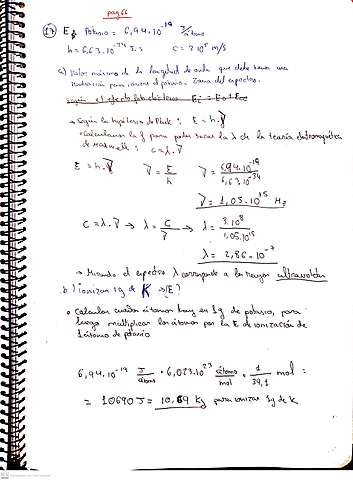 pag 66
17) E₁ Potasio = 6,94.10⁻¹⁹ J/átomo
h = 6,63.10⁻³⁴ J.s c = 3.10⁸ m/s
a) Valor máximo de la longitud de onda que debe tener una
radiación para ionizar el potasio. Zona del espectro.
Según el efecto fotoeléctrico
→ Según la hipótesis de Plack: E = h.ν
• Calculamos la f para poder sacar la λ de la teoría electromagnética
de Maxwell: c = λ.ν
E = h.ν ν = E/h ν = 6,94.10⁻¹⁹/6,63.10⁻³⁴
ν = 1,05.10¹⁵ Hz
c = λ.ν → λ = c/ν → λ = 3.10⁸/1,05.10¹⁵
λ = 2,86.10⁻⁷
→ Mirando el espectro λ corresponde a los rayos ultravioleta
b) ionizar 1g de K → ¿E?
• Calcular cuantos átomos hay en 1g de potasio, para
luego multiplicar los átomos por la E de ionización de
1 átomo de potasio
6,94.10⁻¹⁹ J/átomo • 6,023.10²³ átomo/mol • 1/39,1 mol =
= 10690 J = 10,69 Kj para ionizar 1g de K